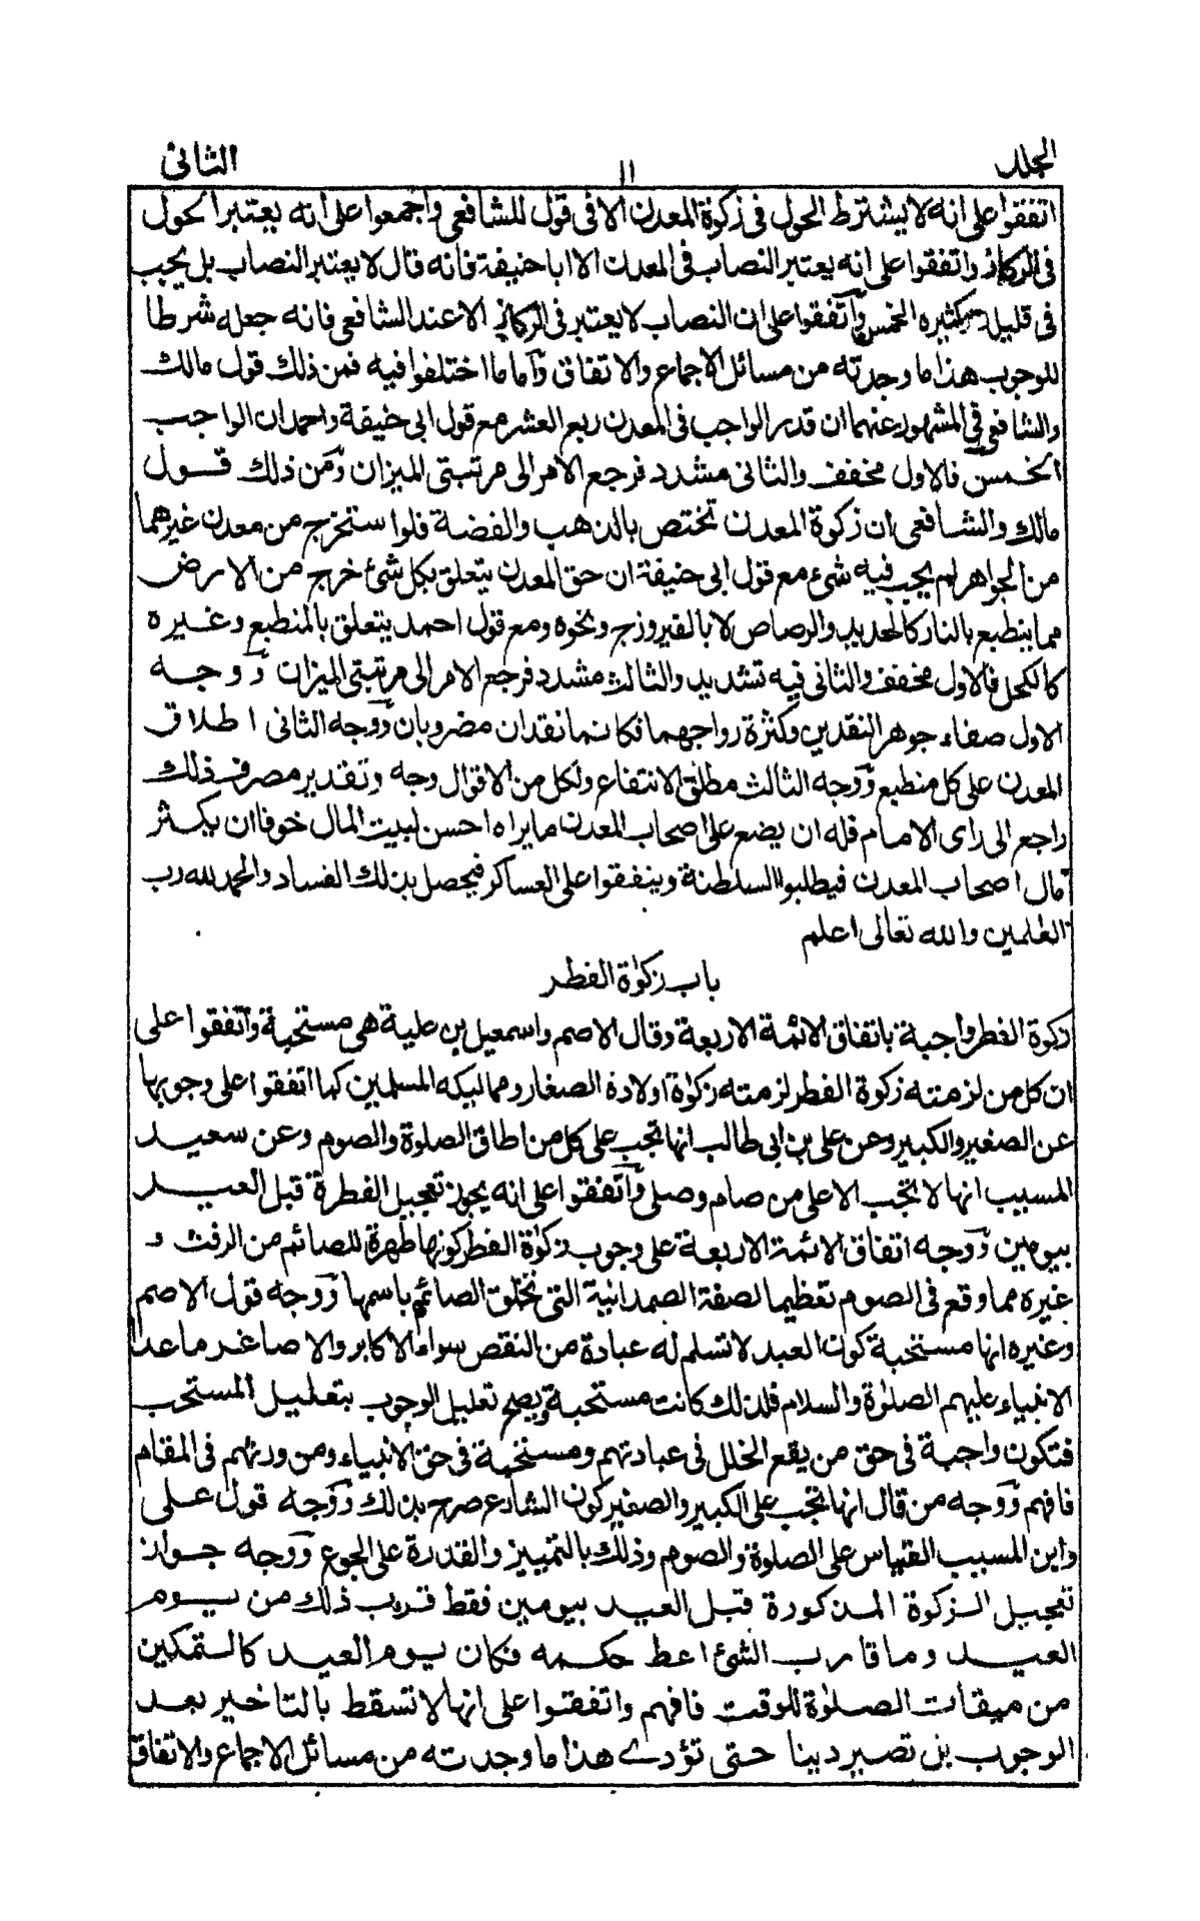 المجلد ١١ الثانى
اتفقوا على انه لا يشترط الحول فى زكوة المعدن الا فى قول للشافعى واجمعوا على انه يعتبر الحول
فى الركاز واتفقوا على انه يعتبر النصاب فى المعدن الا ابا حنيفة فانه قال لا يعتبر النصاب بل يجب
فى قليله وكثيره الخمس واتفقوا على ان النصاب لا يعتبر فى الركاز الا عند الشافعى فانه جعله شرطا
للوجوب هذا ما وجدته من مسائل الاجماع والاتفاق واما ما اختلفوا فيه فمن ذلك قول مالك
والشافعى فى المشهور عنهما ان قدر الواجب فى المعدن ربع العشر مع قول ابى حنيفة واحمد ان الواجب
الخمس فالاول مخفف والثانى مشدد فرجع الامر الى مرتبتى الميزان ومن ذلك قول
مالك والشافعى ان زكوة المعدن تختص بالذهب والفضة فلو استخرج من معدن غيرهما
من الجواهر لم يجب فيه شئ مع قول ابى حنيفة ان حق المعدن يتعلق بكل شئ خرج من الارض
مما ينطبع بالنار كالحديد والرصاص لا بالفيروزج ونحوه ومع قول احمد يتعلق بالمنطبع وغيره
كالكحل فالاول مخفف والثانى فيه تشديد والثالث مشدد فرجع الامر الى مرتبتى الميزان ووجه
الاول صفاء جوهر النقدين وكثرة رواجهما فكانهما نقدان مضروبان ووجه الثانى اطلاق
المعدن على كل منطبع ووجه الثالث مطلق الانتفاع ولكل من الاقوال وجه وتقدير مصرف ذلك
راجع الى راى الامام فله ان يضع على اصحاب المعدن ما يراه احسن لبيت المال خوفا ان يكثر
مال اصحاب المعدن فيطلبوا السلطنة وينفقوا على العساكر فيحصل بذلك الفساد والحمد لله رب
العلمين والله تعالى اعلم
باب زكوة الفطر
زكوة الفطر واجبة باتفاق الائمة الاربعة وقال الاصم واسمعيل بن علية هى مستحبة واتفقوا على
ان كل من لزمته زكوة الفطر لزمته زكوة اولاده الصغار ومماليكه المسلمين كما اتفقوا على وجوبها
عن الصغير والكبير وعن على بن ابى طالب انها تجب على كل من اطاق الصلوة والصوم وعن سعيد
المسيب انها لا تجب الا على من صام وصلى واتفقوا على انه يجوز تعجيل الفطرة قبل العيد
بيومين ووجه اتفاق الائمة الاربعة على وجوب زكوة الفطر كونها طهرة للصائم من الرفث و
غيره مما وقع فى الصوم تعظيما لصفة الصمدانية التى تخلق الصائم باسمها ووجه قول الاصم
وغيره انها مستحبة كون العبد لا تسلم له عبادة من النقص سواء الاكابر والاصاغر ما عدا
الانبياء عليهم الصلوة والسلام فلذلك كانت مستحبة ويصح تعليل الوجوب بتعليل المستحب
فتكون واجبة فى حق من يقع الخلل فى عبادتهم ومستحبة فى حق الانبياء ومن ورثهم فى المقام
فافهم ووجه من قال انها تجب على الكبير والصغير كون الشارع صرح بذلك ووجه قول على
وابن المسيب القياس على الصلوة والصوم وذلك بالتمييز والقدرة على الجوع ووجه جواز
تعجيل الزكوة المذكورة قبل العيد بيومين فقط قرب ذلك من يوم
العيد وما قارب الشئ اعط حكمه فكان يوم العيد كالتمكين
من ميقات الصلوة للوقت فافهم واتفقوا على انها لا تسقط بالتاخير بعد
الوجوب بل تصير دينا حتى تؤدے هذا ما وجدته من مسائل الاجماع والاتفاق